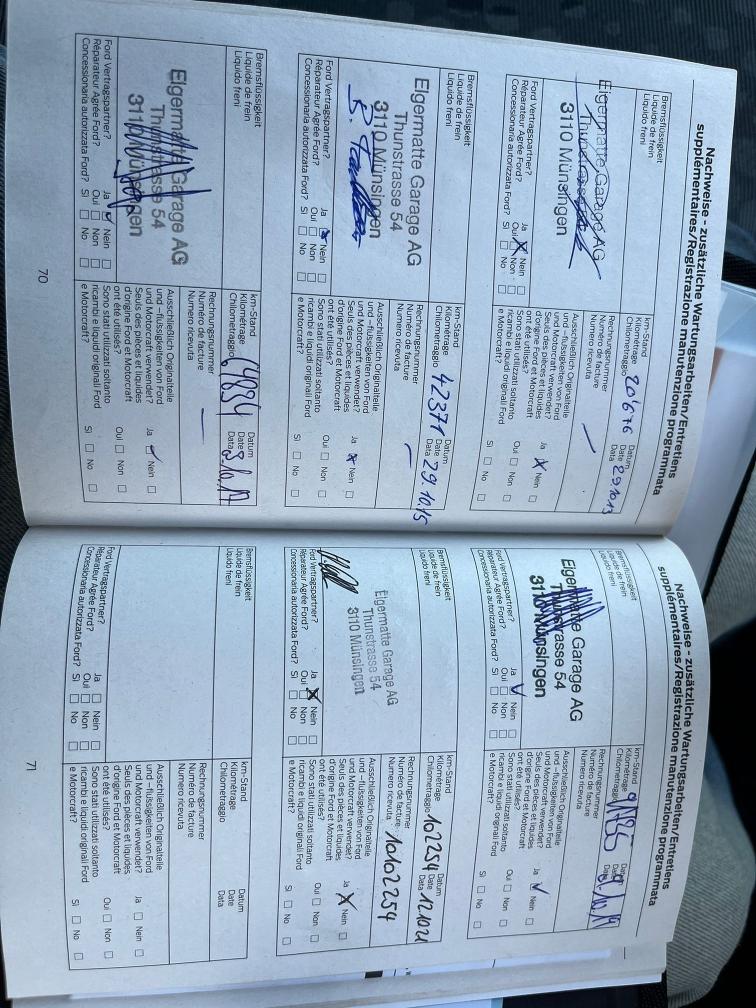 Nachweise - zusätzliche Wartungsarbeiten/Entretiens
supplémentaires/Registrazione manutenzione programmata
Bremsflüssigkeit
Liquide de frein
Liquido freni
Eigermatte Garage AG
Thunstrasse
3110 Münsingen
Ford Vertragspartner? Ja Nein
Réparateur Agrée Ford? Oui Non
Concessionaria autorizzata Ford? Si No
km-Stand Datum
Kilométrage Date
Chilometraggio 20676 Data 29.10.13
Rechnungsnummer
Numéro de facture
Numero ricevuta
Ausschließlich Originalteile
und –flüssigkeiten von Ford
und Motorcraft verwendet? Ja Nein
Seuls des pièces et liquides
d'origine Ford et Motorcraft
ont été utilisés? Oui Non
Sono stati utilizzati soltanto
ricambi e liquidi originali Ford
e Motorcraft? Si No
Bremsflüssigkeit
Liquide de frein
Liquido freni
Eigermatte Garage AG
Thunstrasse 54
3110 Münsingen
Ford Vertragspartner? Ja Nein
Réparateur Agrée Ford? Oui Non
Concessionaria autorizzata Ford? Si No
km-Stand Datum
Kilométrage Date
Chilometraggio 42371 Data 29.10.15
Rechnungsnummer
Numéro de facture
Numero ricevuta
Ausschließlich Originalteile
und –flüssigkeiten von Ford
und Motorcraft verwendet? Ja Nein
Seuls des pièces et liquides
d'origine Ford et Motorcraft
ont été utilisés? Oui Non
Sono stati utilizzati soltanto
ricambi e liquidi originali Ford
e Motorcraft? Si No
Bremsflüssigkeit
Liquide de frein
Liquido freni
Eigermatte Garage AG
Thunstrasse 54
3110 Münsingen
Ford Vertragspartner? Ja Nein
Réparateur Agrée Ford? Oui Non
Concessionaria autorizzata Ford? Si No
km-Stand Datum
Kilométrage Date
Chilometraggio 64834 Data
Rechnungsnummer
Numéro de facture
Numero ricevuta
Ausschließlich Originalteile
und –flüssigkeiten von Ford
und Motorcraft verwendet? Ja Nein
Seuls des pièces et liquides
d'origine Ford et Motorcraft
ont été utilisés? Oui Non
Sono stati utilizzati soltanto
ricambi e liquidi originali Ford
e Motorcraft? Si No
70
Nachweise - zusätzliche Wartungsarbeiten/Entretiens
supplémentaires/Registrazione manutenzione programmata
Bremsflüssigkeit
Liquide de frein
Liquido freni
Eigermatte Garage AG
Thunstrasse 54
3110 Münsingen
Ford Vertragspartner? Ja Nein
Réparateur Agrée Ford? Oui Non
Concessionaria autorizzata Ford? Si No
km-Stand
Kilométrage
Chilometraggio
Rechnungsnummer
Numéro de facture
Numero ricevuta
Ausschließlich Originalteile
und –flüssigkeiten von Ford
und Motorcraft verwendet? Ja Nein
Seuls des pièces et liquides
d'origine Ford et Motorcraft
ont été utilisés? Oui Non
Sono stati utilizzati soltanto
ricambi e liquidi originali Ford
e Motorcraft? Si No
Bremsflüssigkeit
Liquide de frein
Liquido freni
Eigermatte Garage AG
Thunstrasse 54
3110 Münsingen
Ford Vertragspartner? Ja Nein
Réparateur Agrée Ford? Oui Non
Concessionaria autorizzata Ford? Si No
km-Stand Datum
Kilométrage Date
Chilometraggio 102254 Data
Rechnungsnummer
Numéro de facture
Numero ricevuta 10102254
Ausschließlich Originalteile
und –flüssigkeiten von Ford
und Motorcraft verwendet? Ja Nein
Seuls des pièces et liquides
d'origine Ford et Motorcraft
ont été utilisés? Oui Non
Sono stati utilizzati soltanto
ricambi e liquidi originali Ford
e Motorcraft? Si No
Bremsflüssigkeit
Liquide de frein
Liquido freni
Ford Vertragspartner? Ja Nein
Réparateur Agrée Ford? Oui Non
Concessionaria autorizzata Ford? Si No
km-Stand Datum
Kilométrage Date
Chilometraggio Data
Rechnungsnummer
Numéro de facture
Numero ricevuta
Ausschließlich Originalteile
und –flüssigkeiten von Ford
und Motorcraft verwendet? Ja Nein
Seuls des pièces et liquides
d'origine Ford et Motorcraft
ont été utilisés? Oui Non
Sono stati utilizzati soltanto
ricambi e liquidi originali Ford
e Motorcraft? Si No
71